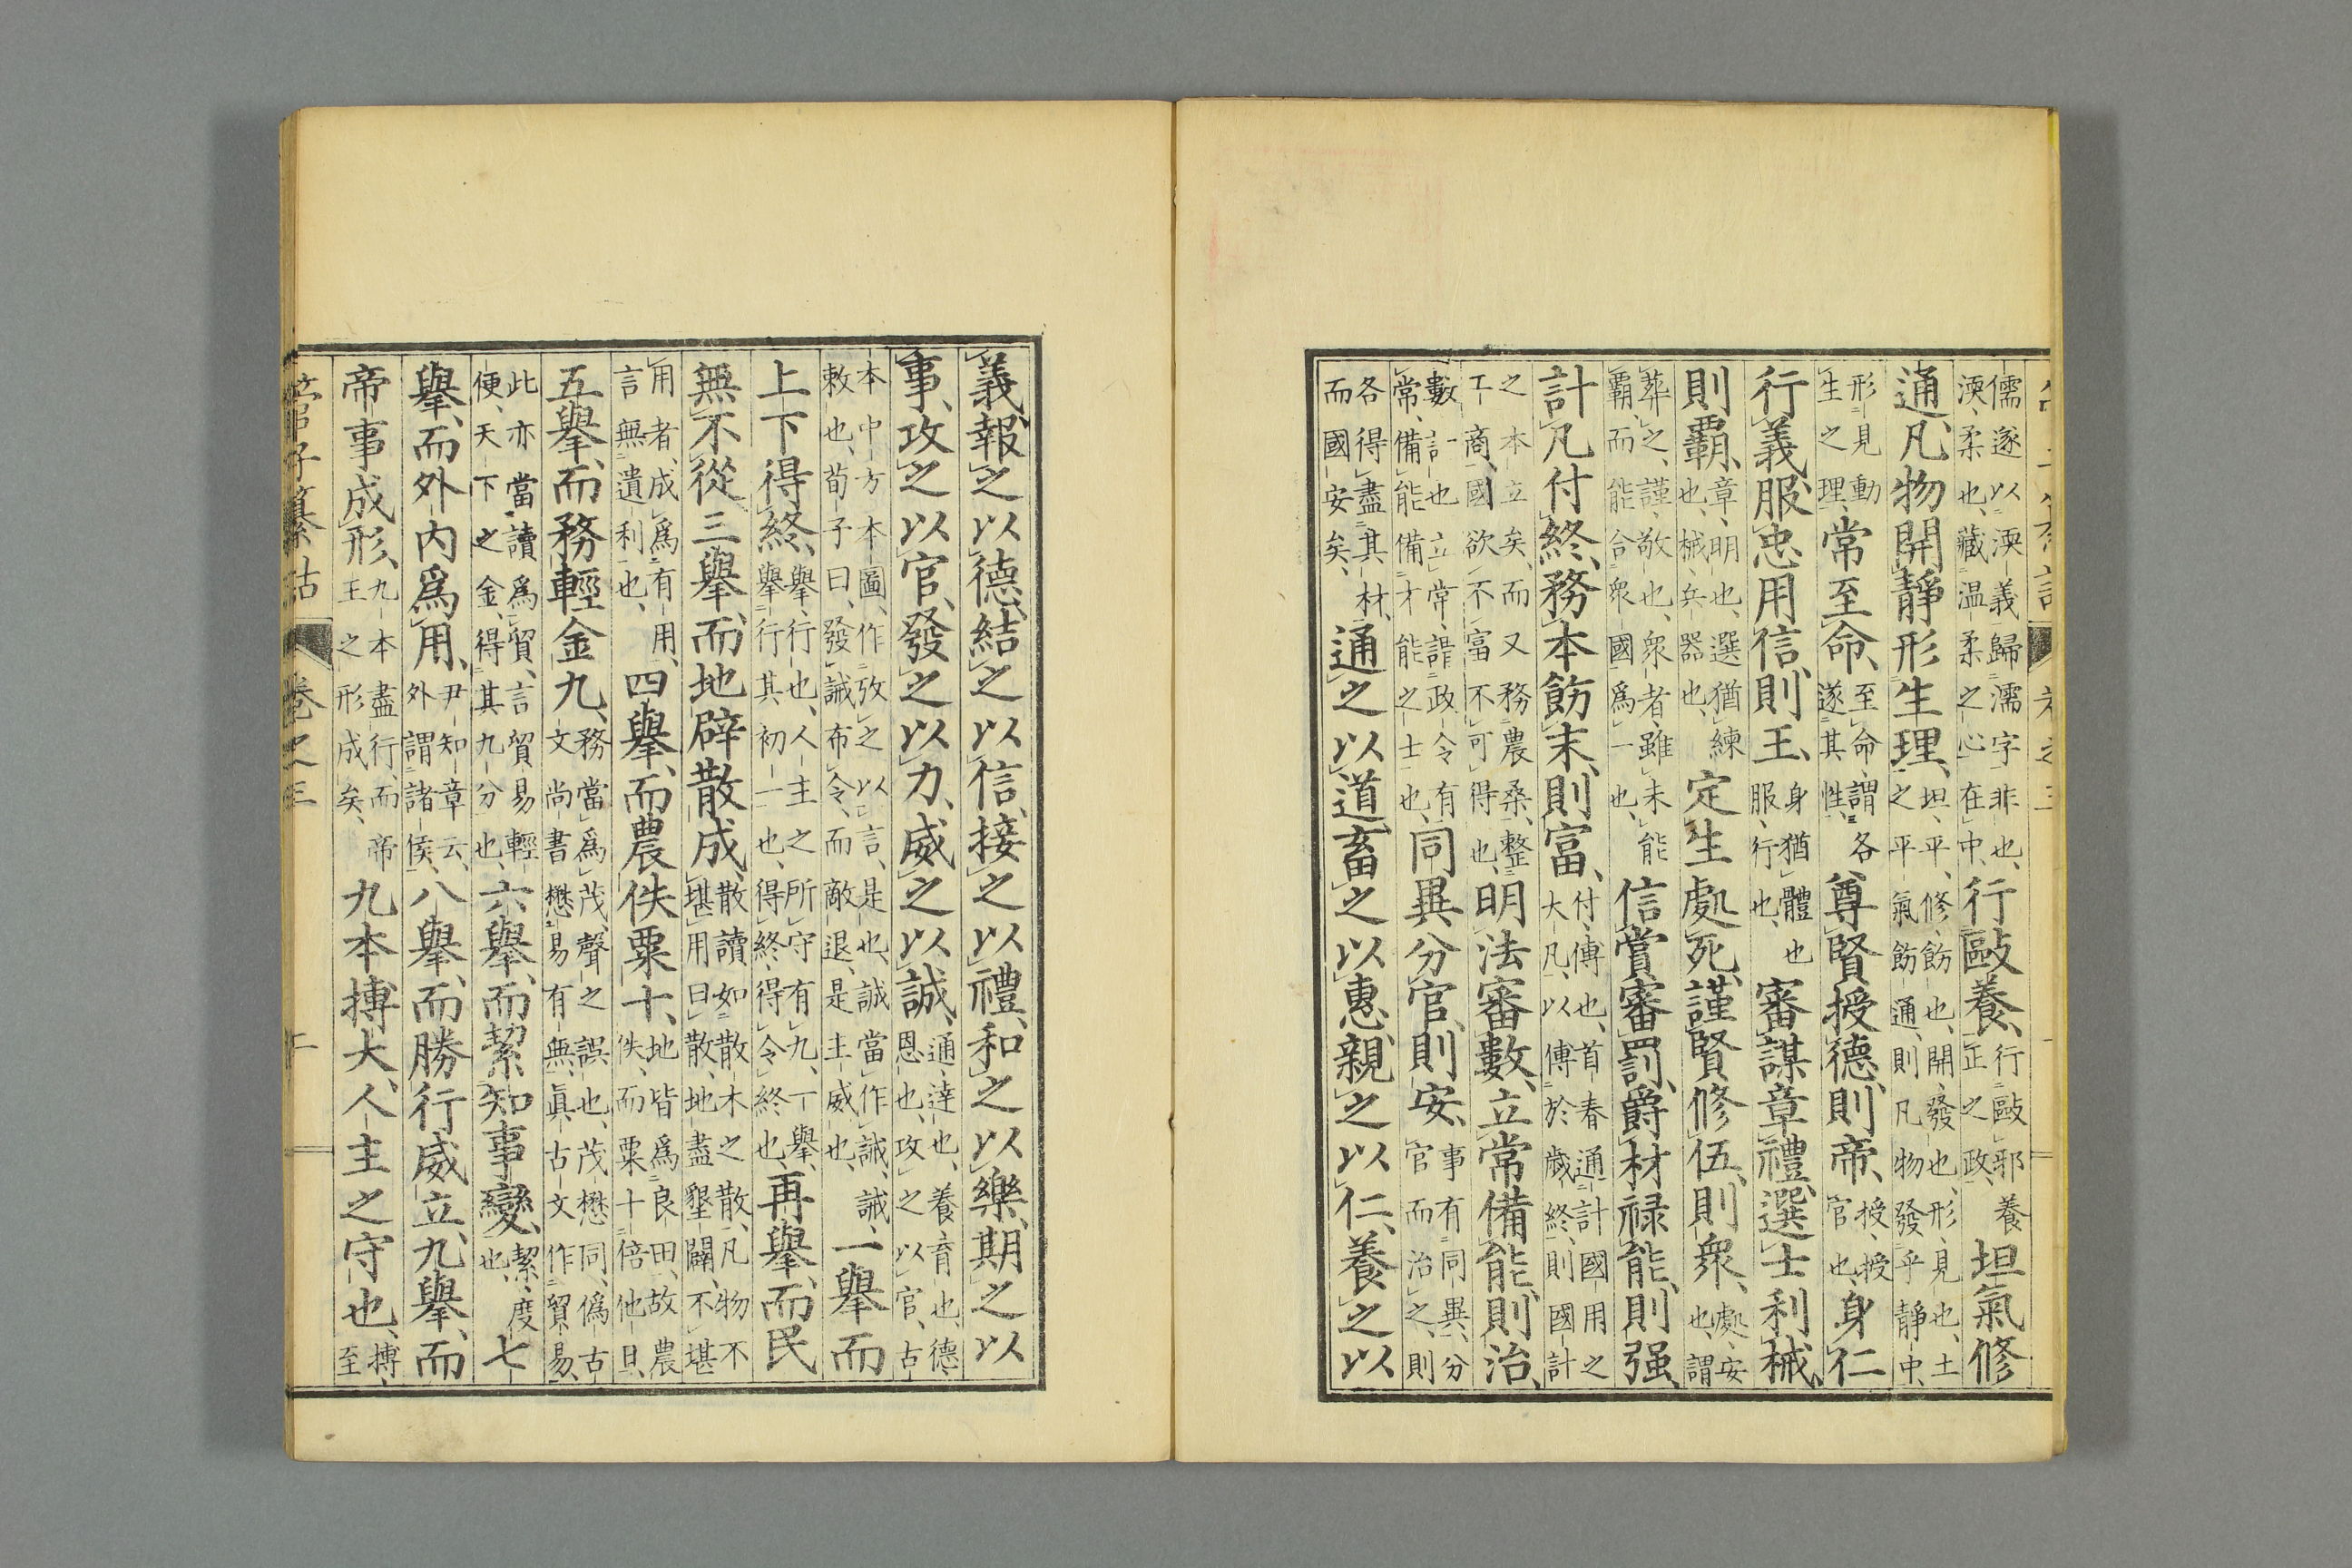 儒遂以渜義歸濡字非也、渜、柔也、藏温柔之心在中、行毆養、行毆邪養正之政、坦氣修
通、凡物開靜形生理、坦、平、修、飭也、開、發也、形、見也、土之平氣飭通、則凡物發乎靜中、
形見動生之理、常至命、至命、謂各遂其性、尊賢授德、則帝、授、授官也、身仁
行義、服忠用信、則王、身猶體也服、行也、審謀章禮、選士利械、
則霸、章、明也、選猶練也、械、兵器也、定生處死、謹賢修伍、則衆、處、安也、謂
葬之、謹、敬也、衆者、雖未能霸、而能合衆國爲一也、信賞審罰、爵材祿能、則强、
計凡付終、務本飭末、則富、付、傅也、首春通計國用之大凡、以傅於歲終、則國計
之本立矣、而又務農桑、整工商、國欲不富、不可得也、明法審數、立常備能、則治、
數計也立常、謂政令有常、備能、備才能之士也、同異分官、則安、事有同異、分官而治之、則
各得盡其材、而國安矣、通之以道、畜之以惠、親之以仁、養之以
義、報之以德、結之以信、接之以禮、和之以樂、期之以
事、攻之以官、發之以力、威之以誠、通、達也、養育也、德恩也、攻之以官、古
本中方本圖、作攷之以言、是也、誠當作誡、誡、敕也、荀子曰、發誡布令、而敵退、是主威也、一舉而
上下得終、舉、行也、人主之所守有九、一舉、舉行其初一也、得終、得令終也、再舉、而民
無不從、三舉、而地辟散成、散讀如散木之散、凡物不堪用曰散、地盡墾闢、不堪
用者、成爲有用、言無遺利也、四舉、而農佚粟十、地皆爲良田、故農佚、而粟十倍他日、
五舉、而務輕金九、務當爲茂、聲之誤也、茂懋同、僞古文尚書懋易有無、眞古文作貿易、
此亦當讀爲貿、言貿易輕便、天下之金、得其九分也、六舉、而絜知事變、絜、度也、七
舉、而外内爲用、尹知章云、外謂諸侯、八舉、而勝行威立、九舉、而
帝事成形、九本盡行、而帝王之形成矣、九本搏大、人主之守也、搏、至
管子纂詁　卷之三